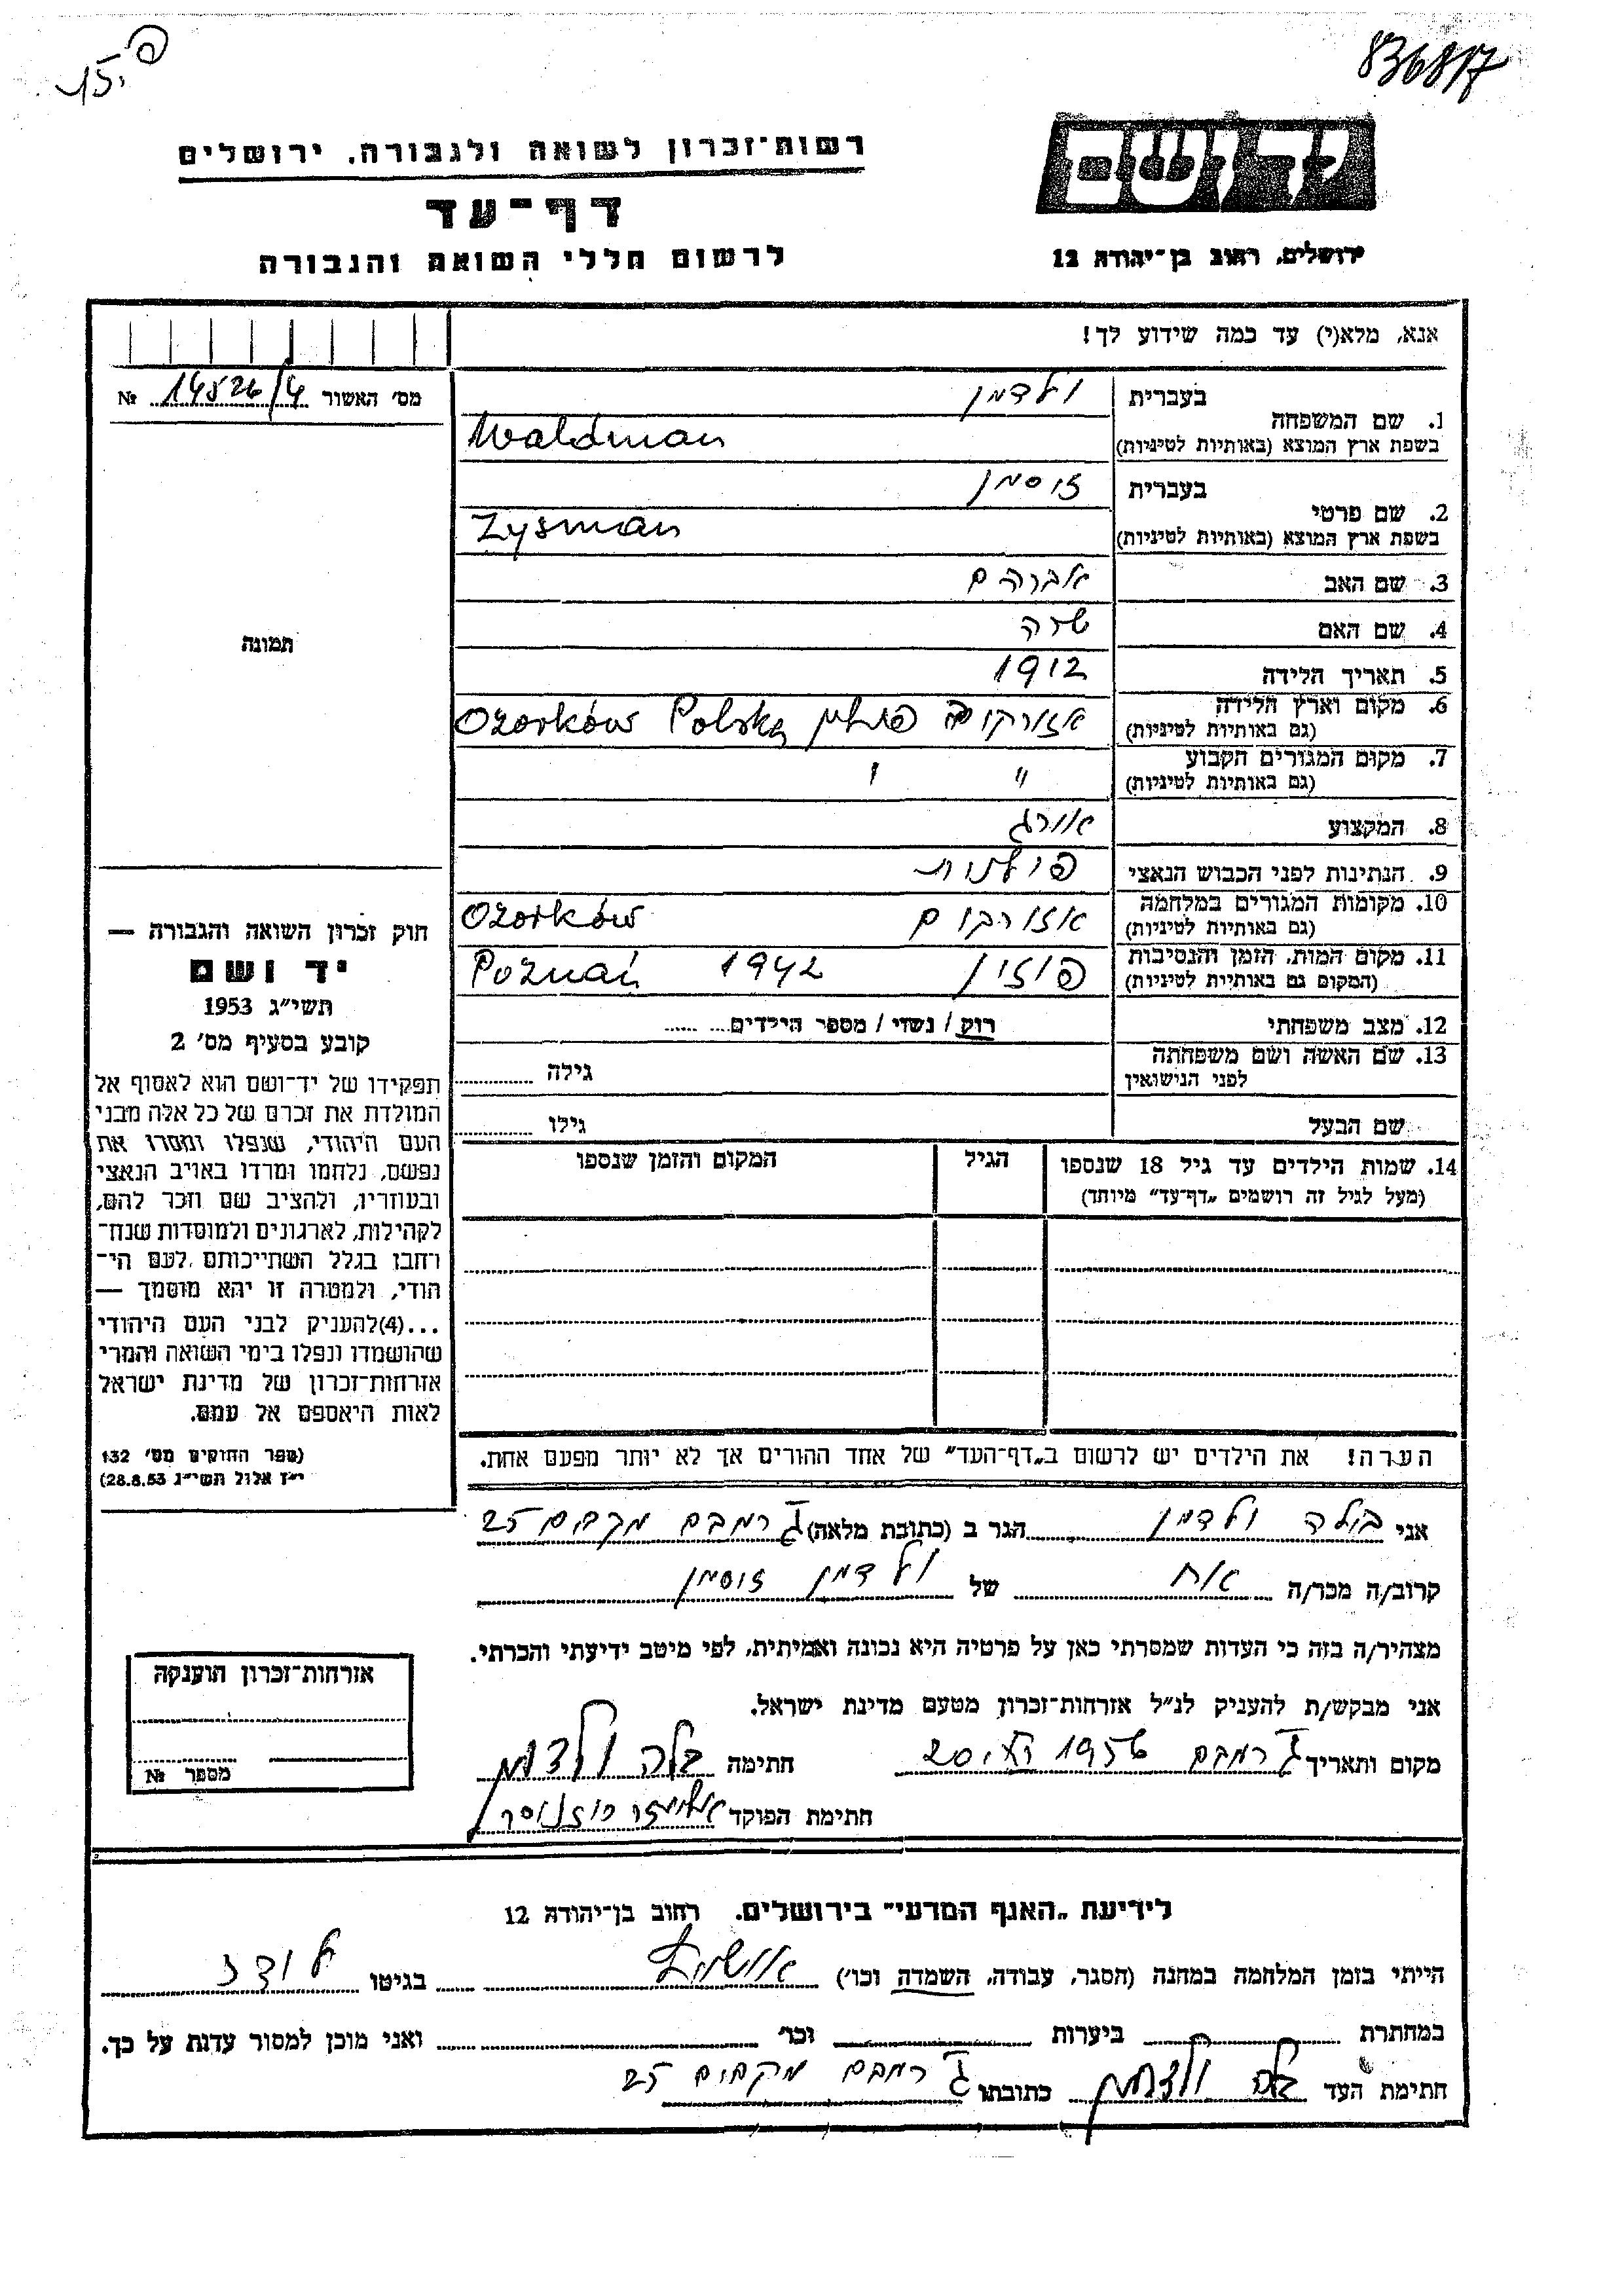 פ.
15.
836817
רשות־זכרון לשואה ולגבורה. ירושלים
דף־עד
לרשום חללי השואה והגבורה
יד ושם
ירושלים, רחוב בן־יהודה 12
אנא, מלא(י) עד כמה שידוע לך!
מס׳ האשור 14526/4 №
תמונה
1. שם המשפחה
בעברית ולדמן
בשפת ארץ המוצא (באותיות לטיניות) Waldman
2. שם פרטי
בעברית זוסמן
בשפת ארץ המוצא (באותיות לטיניות) Zysman
3. שם האב אברהם
4. שם האם שרה
5. תאריך הלידה 1912
6. מקום וארץ הלידה (גם באותיות לטיניות) אזורקוב פולין Ozorków Polska
7. מקום המגורים הקבוע (גם באותיות לטיניות) " "
8. המקצוע אורג
9. הנתינות לפני הכבוש הנאצי פולנית
10. מקומות המגורים במלחמה (גם באותיות לטיניות) Ozorków
11. מקום המות, הזמן והנסיבות (המקום גם באותיות לטיניות) פוזן 1942 Poznań
12. מצב משפחתי רווק / נשוי / מספר הילדים
13. שם האשה ושם משפחתה לפני הנישואין גילה
שם הבעל גילו
14. שמות הילדים עד גיל 18 שנספו (מעל לגיל זה רושמים „דף־עד״ מיוחד) הגיל המקום והזמן שנספו
הערה! את הילדים יש לרשום ב„דף־העד״ של אחד ההורים אך לא יותר מפעם אחת.
חוק זכרון השואה והגבורה —
יד ושם
תשי״ג 1953
קובע בסעיף מס׳ 2
תפקידו של יד־ושם הוא לאסוף אל
המולדת את זכרם של כל אלה מבני
העם היהודי, שנפלו ומסרו את
נפשם, נלחמו ומרדו באויב הנאצי
ובעוזריו, ולהציב שם וזכר להם,
לקהילות, לארגונים ולמוסדות שנח־
רחבו בגלל השתייכותם לעם הי־
הודי, ולמטרה זו יהא מוסמך —
...(4)להעניק לבני העם היהודי
שהושמדו ונפלו בימי השואה והמרי
אזרחות־זכרון של מדינת ישראל
לאות היאספם אל עמם.
(ספר החוקים מס׳ 132
י״ז אלול תשי״ג 28.8.53)
אני בלה ולדמן הגר ב (כתובת מלאה) ג רמבם 25
קרוב/ה מכר/ה אח של ולדמן זוסמן
מצהיר/ה בזה כי העדות שמסרתי כאן על פרטיה היא נכונה ואמיתית, לפי מיטב ידיעתי והכרתי.
אני מבקש/ת להעניק לנ״ל אזרחות־זכרון מטעם מדינת ישראל.
מקום ותאריך ג רמבם 1956 20 חתימה בלה ולדמן
חתימת הפוקד
אזרחות־זכרון הוענקה
מספר №
לידיעת „האגף המדעי״ בירושלים. רחוב בן־יהודה 12
הייתי בזמן המלחמה במחנה (הסגר, עבודה, השמדה וכו׳) אושויץ בגיטו לודז
במחתרת ביערות וכו׳ ואני מוכן למסור עדות על כך.
חתימת העד בלה ולדמן כתובתו ג רמבם 25